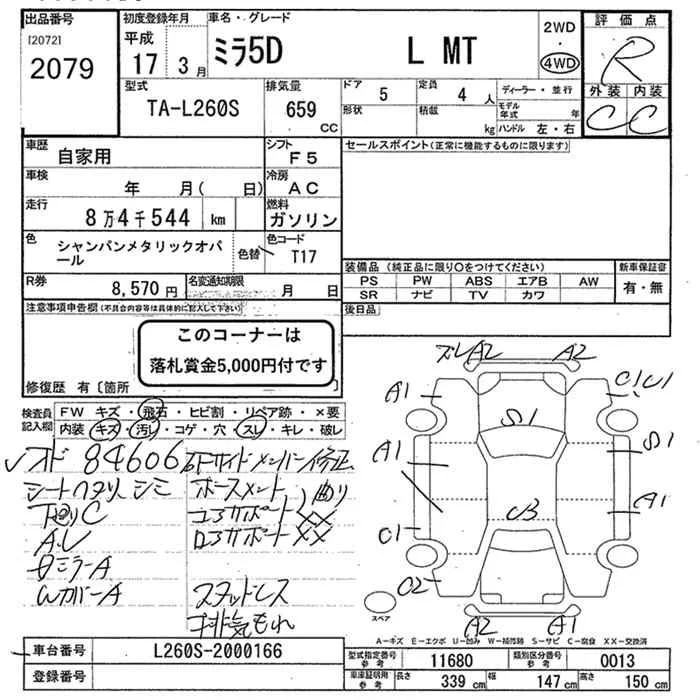 出品番号
[2072]
2079
初度登録年月
平成
17 3月
車名・グレード
ミラ5D L MT
2WD
・
4WD
評価点
R
外装 内装
C C
型式
TA-L260S
排気量
659
CC
ドア 5
形状
定員 4 人
積載 kg
ディーラー・並行
モデル年式 年
ハンドル 左・右
車歴
自家用
シフト
F5
車検
年 月( 日)
冷房
AC
走行
8万4千544 km
燃料
ガソリン
色
シャンパンメタリックオパール
色替
色コード
T17
R券
8,570 円
名変通知期限
月 日
セールスポイント(正常に機能するものに限ります)
装備品 (純正品に限り○をつけてください)
PS PW ABS エアB AW
SR ナビ TV カワ
新車保証書
有・無
後日品
注意事項申告欄(不具合内容等は具体的に記入して下さい)
このコーナーは
落札賞金5,000円付です
修復歴 有〔箇所 〕
検査員記入欄
FW キズ・飛石・ヒビ割・リペア跡・×要
内装 キズ・汚レ・コゲ・穴・スレ・キレ・破レ
オド 84606
シートヘタリ、シミ
下廻りC
A.L
Wカバー A
スタットレス
排気もれ
コアサポート ××
ズレA2 A2
A1
C1 U1
S1
S1
A1
A1
U3
C1
C2
A2 A1
スペア
A―キズ E―エクボ U―凹み W―補修跡 S―サビ C―腐食 XX―交換済
車台番号
L260S-2000166
登録番号
型式指定番号 参考 11680
類別区分番号 参考 0013
車庫証明用 参考
長さ 339 cm 幅 147 cm 高さ 150 cm